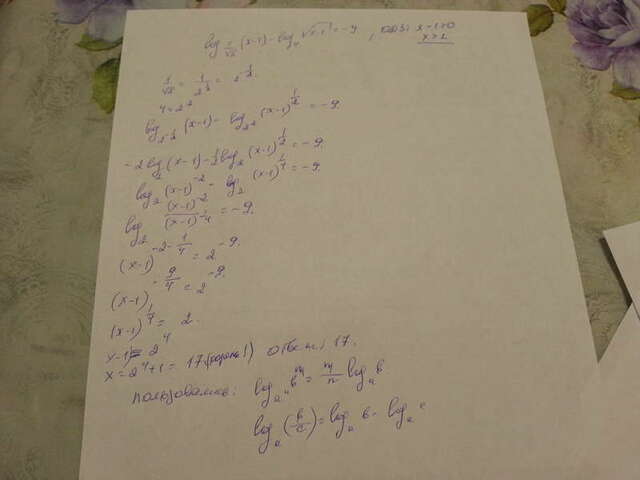 log_{1/√2}(x-1) - log_4 √(x-1) = -9, ОДЗ: x-1>0
x>1
1/√2 = 1/2^{1/2} = 2^{-1/2}.
4=2^2
log_{2^{-1/2}}(x-1) - log_{2^2}(x-1)^{1/2} = -9.
-2log_2(x-1) - 1/2 log_2(x-1)^{1/2} = -9.
log_2(x-1)^{-2} - log_2(x-1)^{1/4} = -9.
log_2 (x-1)^{-2}/(x-1)^{1/4} = -9.
(x-1)^{-2-1/4} = 2^{-9}.
(x-1)^{-9/4} = 2^{-9}.
(x-1)^{1/4} = 2.
x-1 = 2^4
x=2^4+1 = 17 Ответ: 17.
пользовались: log_{a^n} b^m = m/n log_a b
log_a (b/c) = log_a b - log_a c